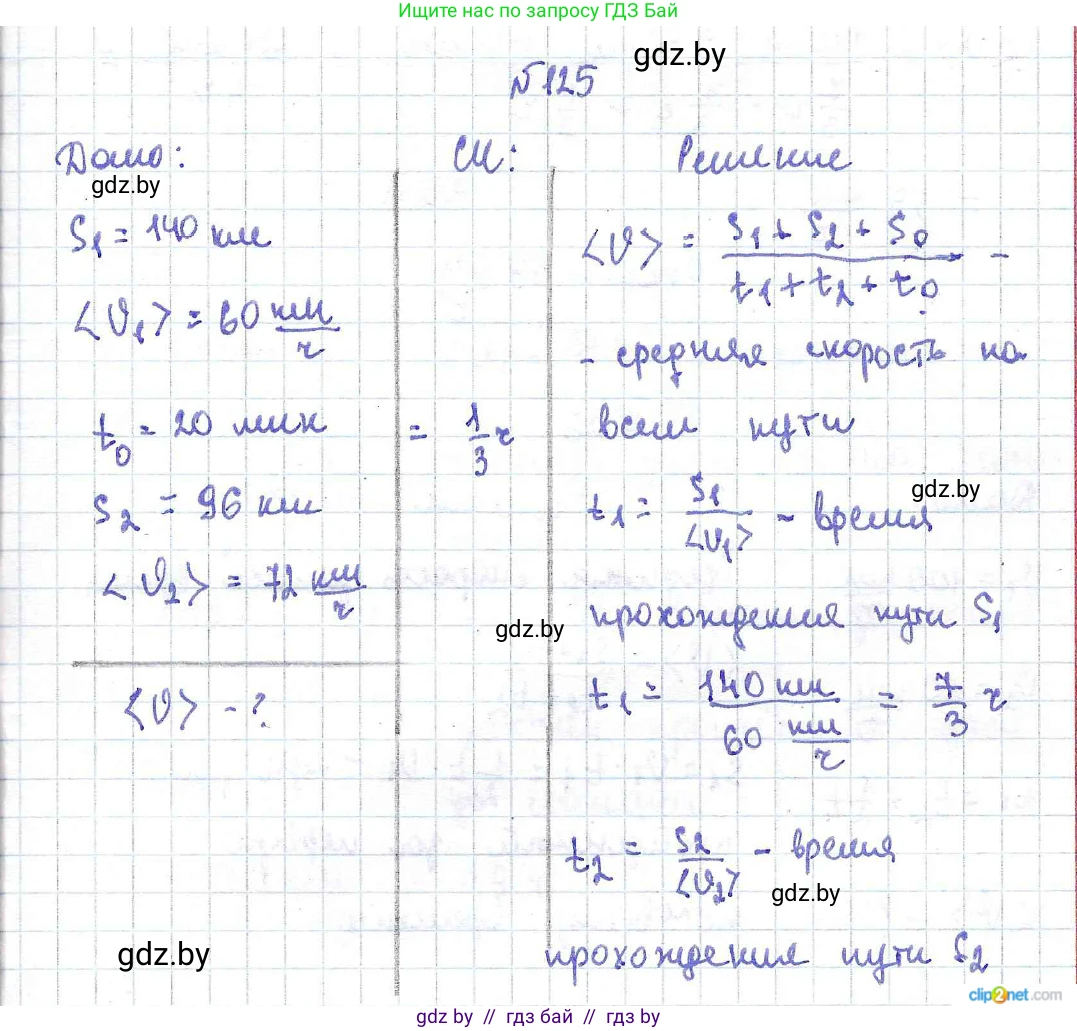 Ищите нас по запросу ГДЗ Бай
gdz.by
№125
Дано:
СИ:
Решение
gdz.by
S₁ = 140 км
<υ₁> = 60 км/ч
t₀ = 20 мин = 1/3 ч
S₂ = 96 км
<υ₂> = 72 км/ч
<υ> - ?
<υ> = (S₁ + S₂ + S₀)/(t₁ + t₂ + t₀) -
- средняя скорость на
всем пути
gdz.by
t₁ = S₁/<υ₁> - время
gdz.by
прохождения пути S₁
t₁ = 140 км/60 км/ч = 7/3 ч
t₂ = S₂/<υ₂> - время
gdz.by
gdz.by
прохождения пути S₂
clip2net.com
gdz by // гдз бай // гдз by